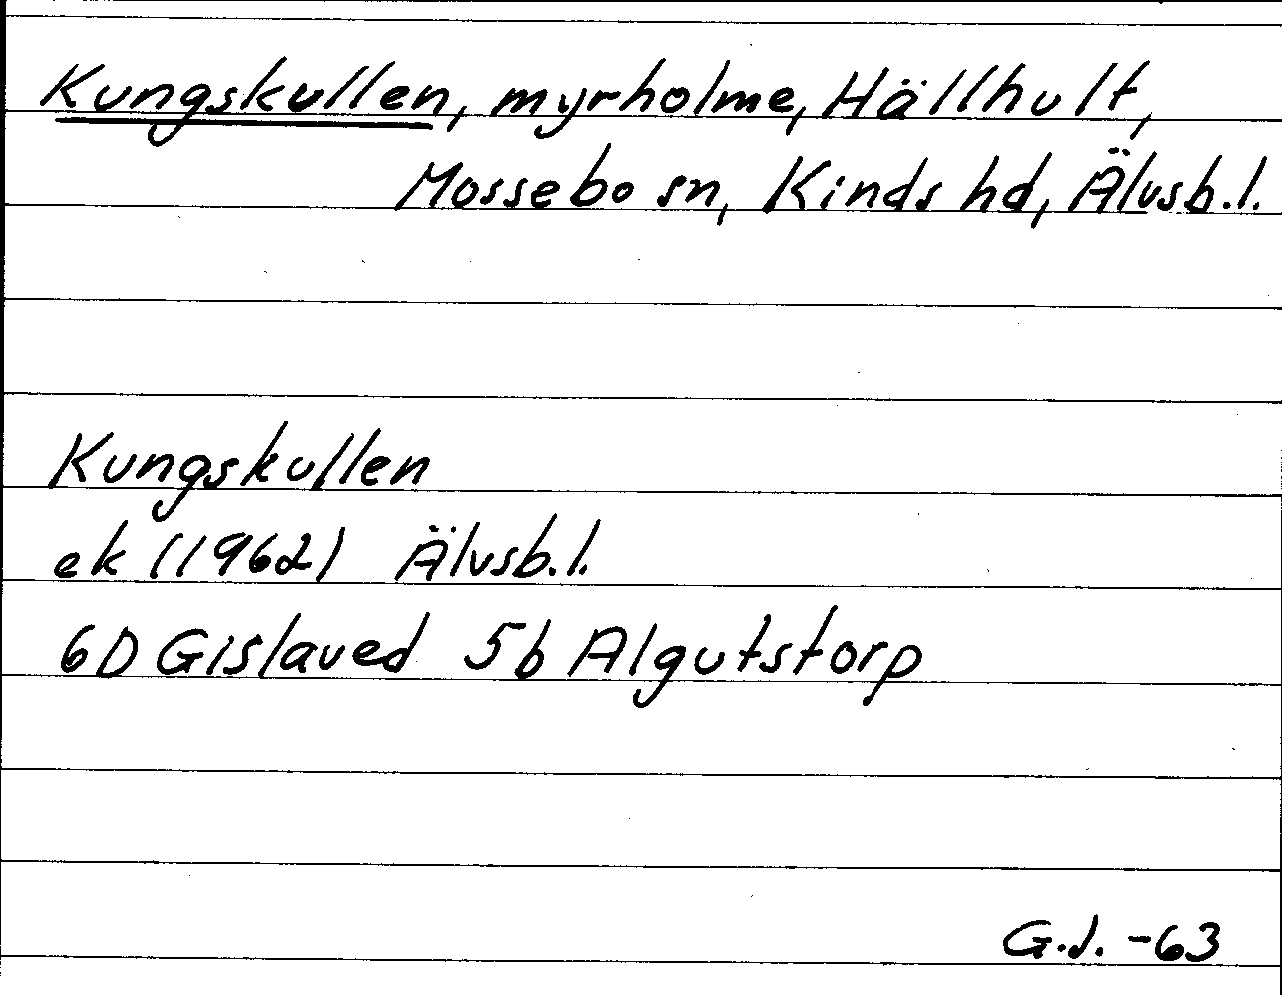 Kungskullen, myrholme, Hällhult,
Mossebo sn, Kinds hd, Älvsb.l.
Kungskullen
ek (1962) Älvsb.l.
6D Gislaved 5b Algutstorp
G.J. -63